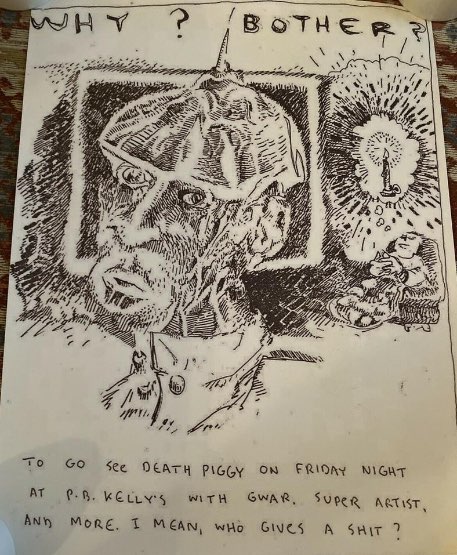 WHY ? BOTHER ?
TO GO See DEATH PIGGY ON FRIDAY NIGHT
AT P.B. KELLY'S WITH GWAR. SUPER ARTIST,
AND MORE. I MEAN, WHO GIVES A SHIT ?